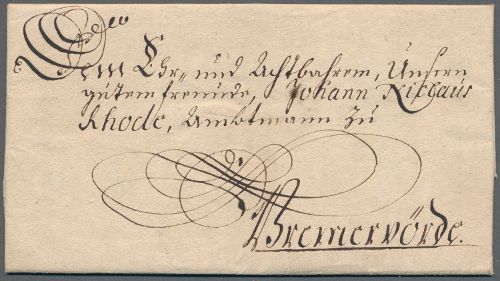 Dem Ehr- und Achtbahrem, Unsern
gutem freunde, Johann Niclaus
Rhode, Ambtmann zu
Bremervörde.